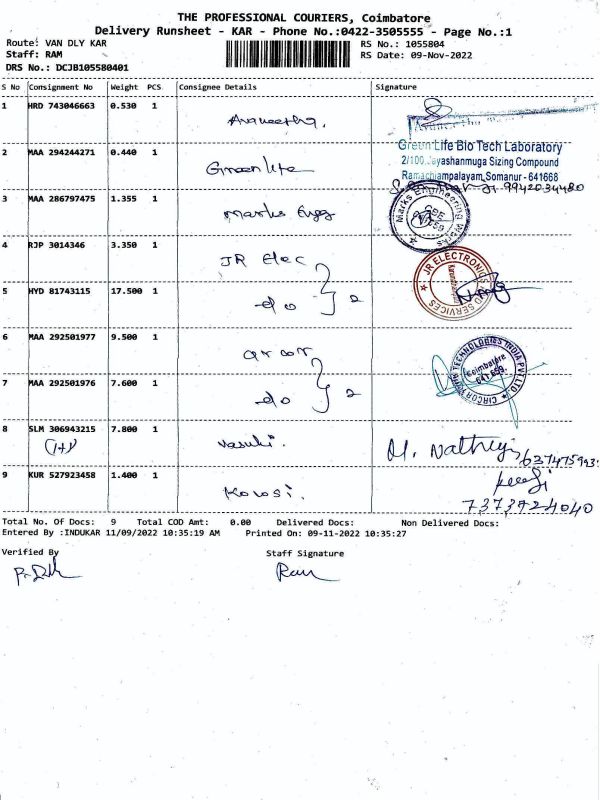 THE PROFESSIONAL COURIERS, Coimbatore
Delivery Runsheet - KAR - Phone No.:0422-3505555 - Page No.:1
Route: VAN DLY KAR
RS No.: 1055804
Staff: RAM
RS Date: 09-Nov-2022
DRS No.: DCJB105580401
S No Consignment No Weight PCS Consignee Details Signature
1 HRD 743046663 0.530 1
2 MAA 294244271 0.440 1 Greenlife
Green Life Bio Tech Laboratory
2/100, Jayashanmuga Sizing Compound
Ramachiampalayam, Somanur - 641668
9942034480
3 MAA 286797475 1.355 1 Marks Engg
Marks Engineering Works
4 RJP 3014346 3.350 1 JR Elec
JR ELECTRONICS AND SERVICES
5 HYD 81743115 17.500 1 -do 2
6 MAA 292501977 9.500 1 arcor
TECHNOLOGIES INDIA PVT LTD.
Coimbatore
641 659.
7 MAA 292501976 7.600 1 -do 2
8 SLM 306943215 7.800 1 Vasuki.
(1+)
9 KUR 527923458 1.400 1
7373724040
Total No. Of Docs: 9 Total COD Amt: 0.00 Delivered Docs: Non Delivered Docs:
Entered By :INDUKAR 11/09/2022 10:35:19 AM Printed On: 09-11-2022 10:35:27
Verified By Staff Signature
Ram